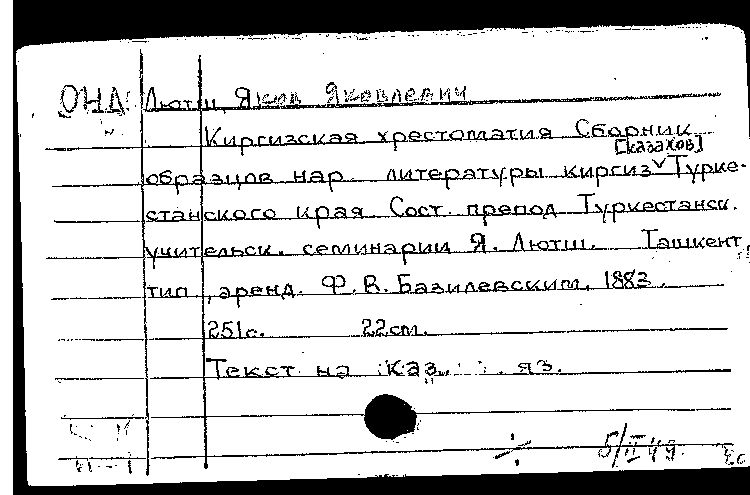 ОНД Лютш, Яков Яковлевич
Киргизская хрестоматия Сборник
[казахов]
образцов нар. литературы киргиз Турке-
станского края Сост. препод Туркестанск.
учительск. семинарии Я. Лютш. Ташкент,
тип., аренд. Ф. В. Базилевским, 1883.
251с. 22см.
Текст на каз. яз.
5/II 49.